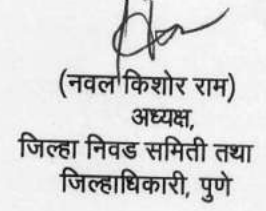 (नवल किशोर राम)
अध्यक्ष,
जिल्हा निवड समिती तथा
जिल्हाधिकारी, पुणे